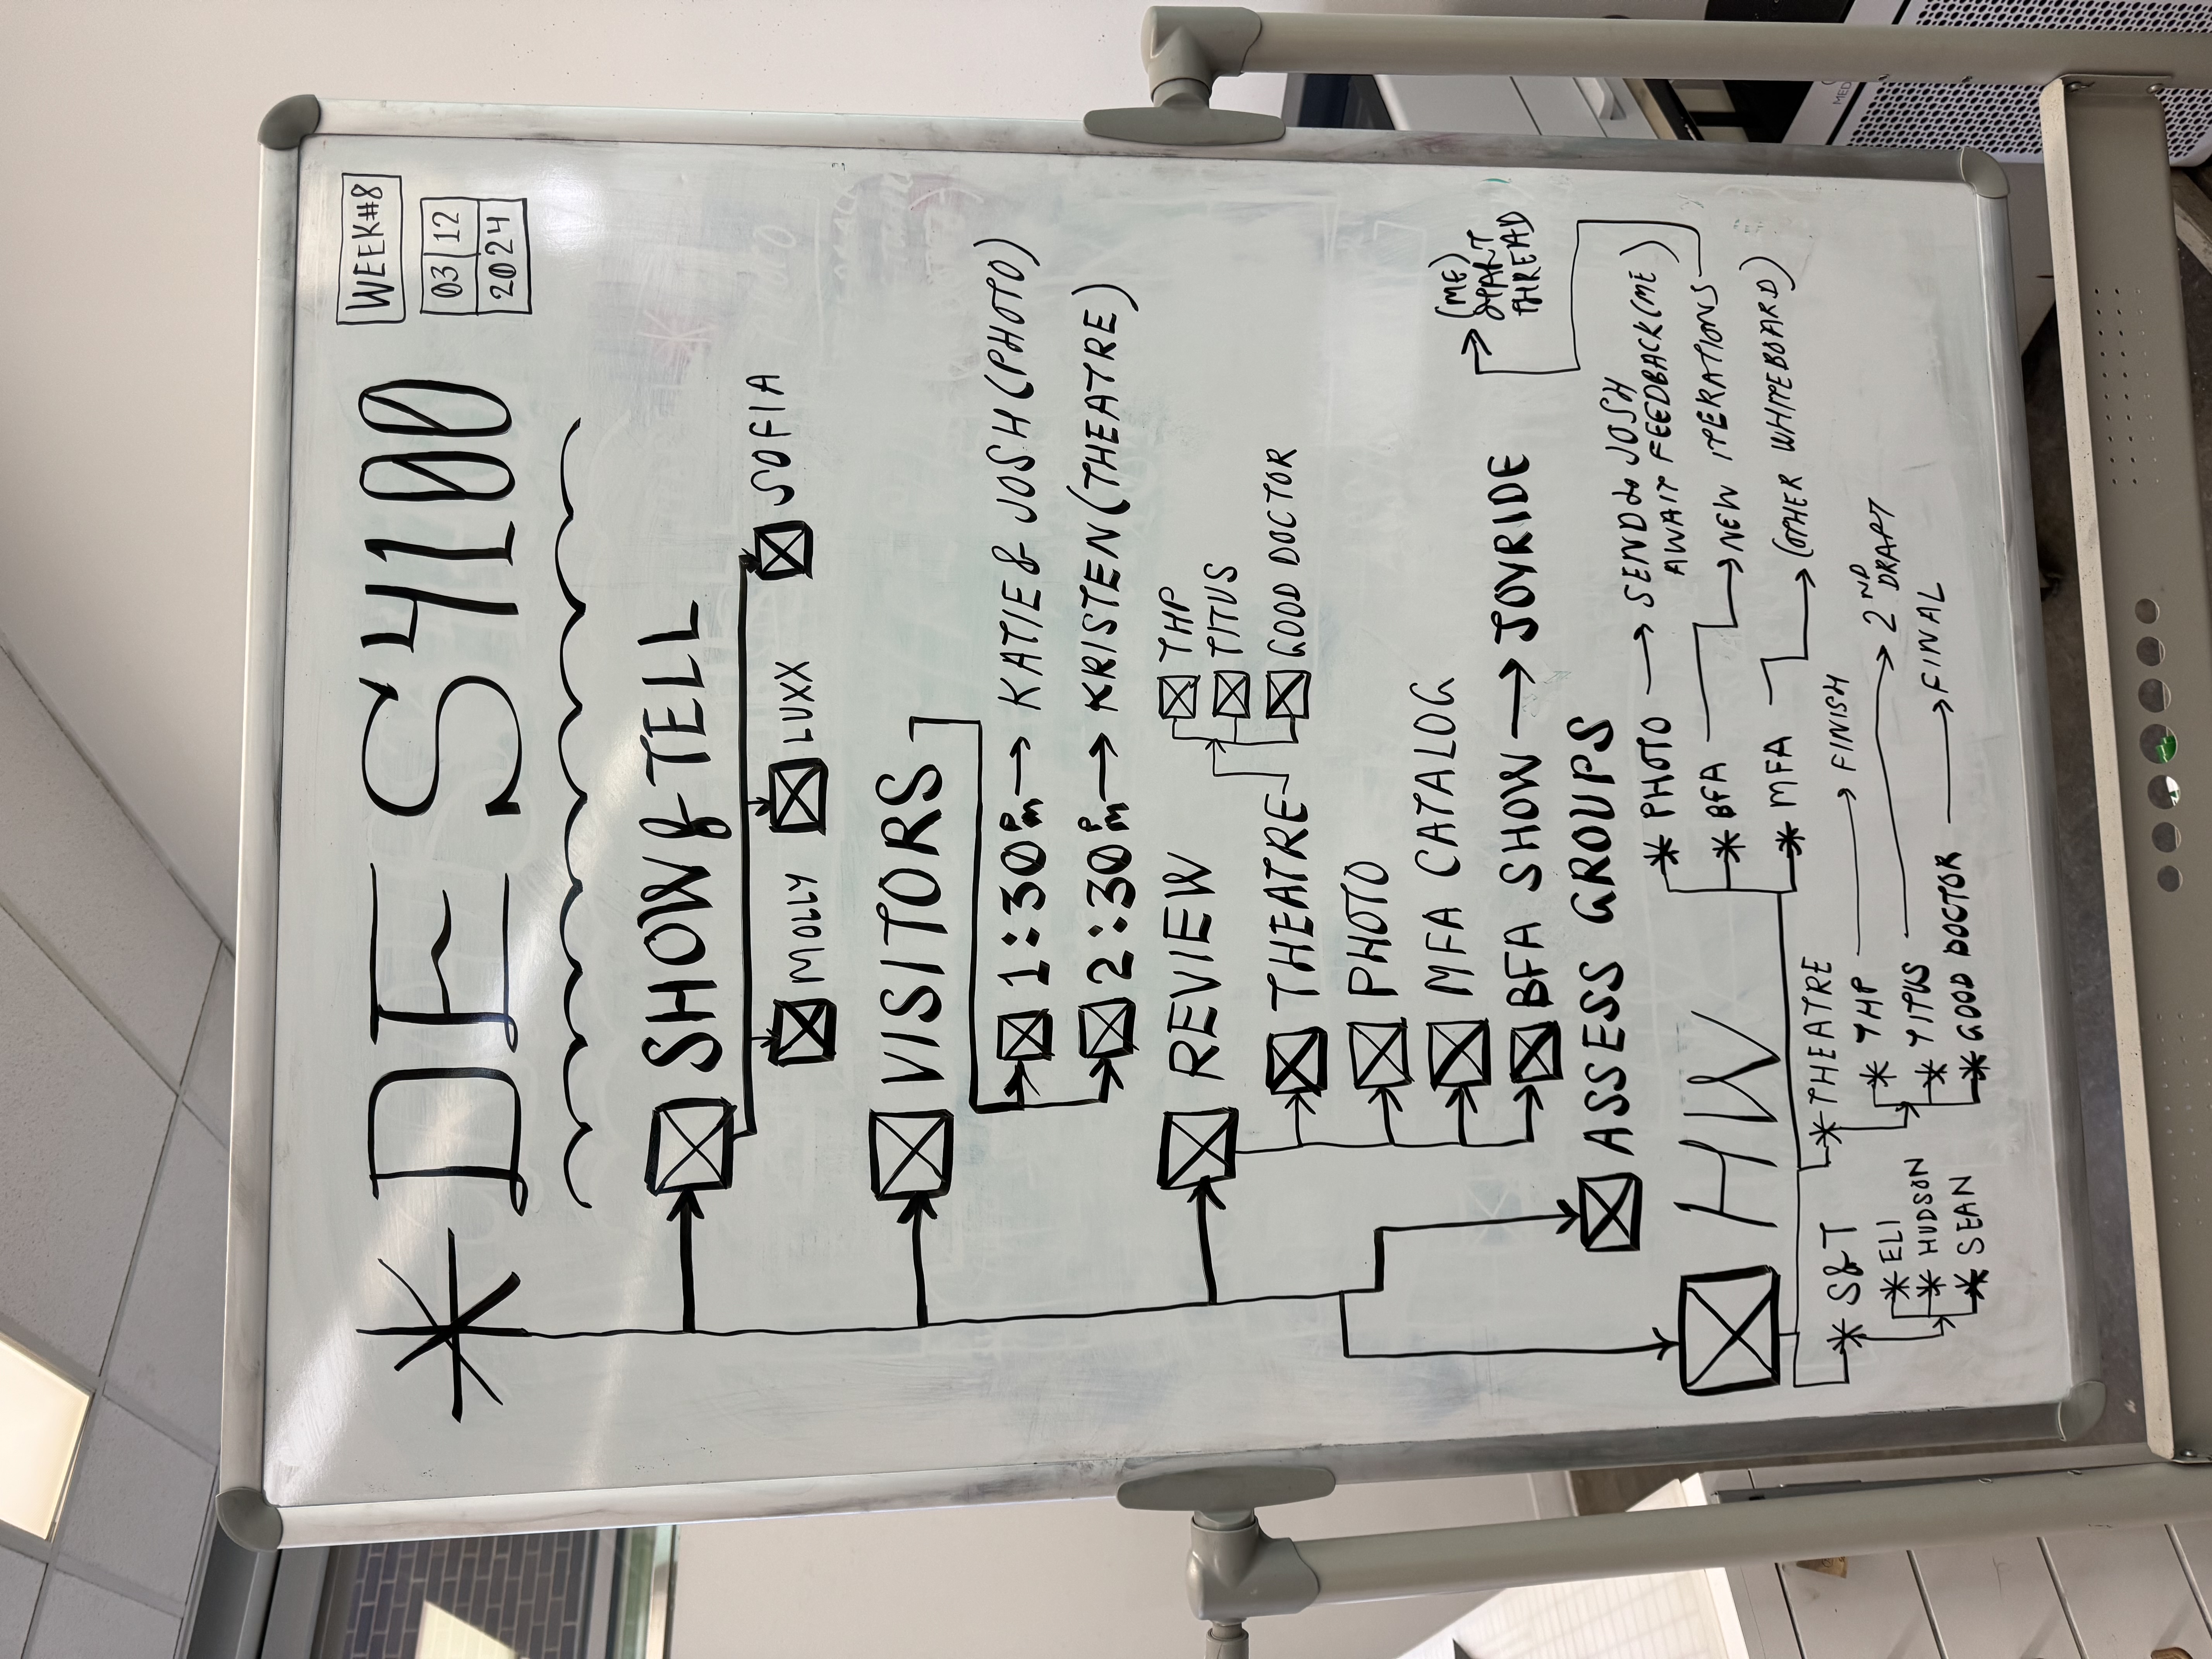 WEEK#8
03|12
2024
*DES4100
SHOW & TELL
MOLLY LUXX SOFIA
VISITORS
1:30PM → KATIE & JOSH (PHOTO)
2:30PM → KRISTEN (THEATRE)
REVIEW
THEATRE
THP
TITUS
GOOD DOCTOR
PHOTO
MFA CATALOG
BFA SHOW → JOYRIDE
ASSESS GROUPS
HW
* S&T
* ELI
* HUDSON
* SEAN
* THEATRE
* THP → FINISH
* TITUS → 2ND DRAFT
* GOOD DOCTOR → FINAL
* PHOTO → SEND to JOSH
AWAIT FEEDBACK (ME)
* BFA → NEW ITERATIONS
(ME)
START
THREAD
* MFA → (OTHER WHITEBOARD)
MED